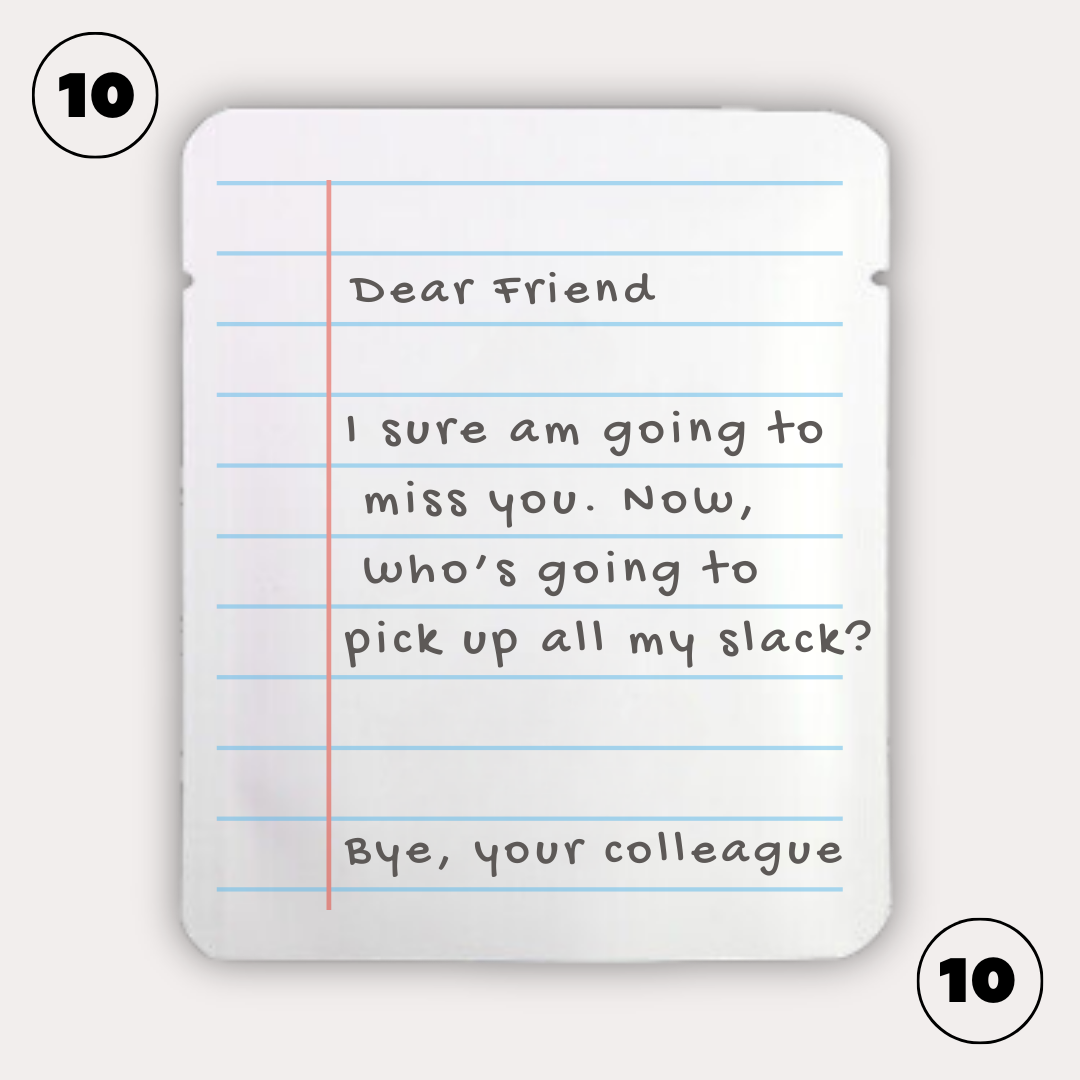 10
Dear Friend
I sure am going to
miss you. Now,
who's going to
pick up all my slack?
Bye, your colleague
10